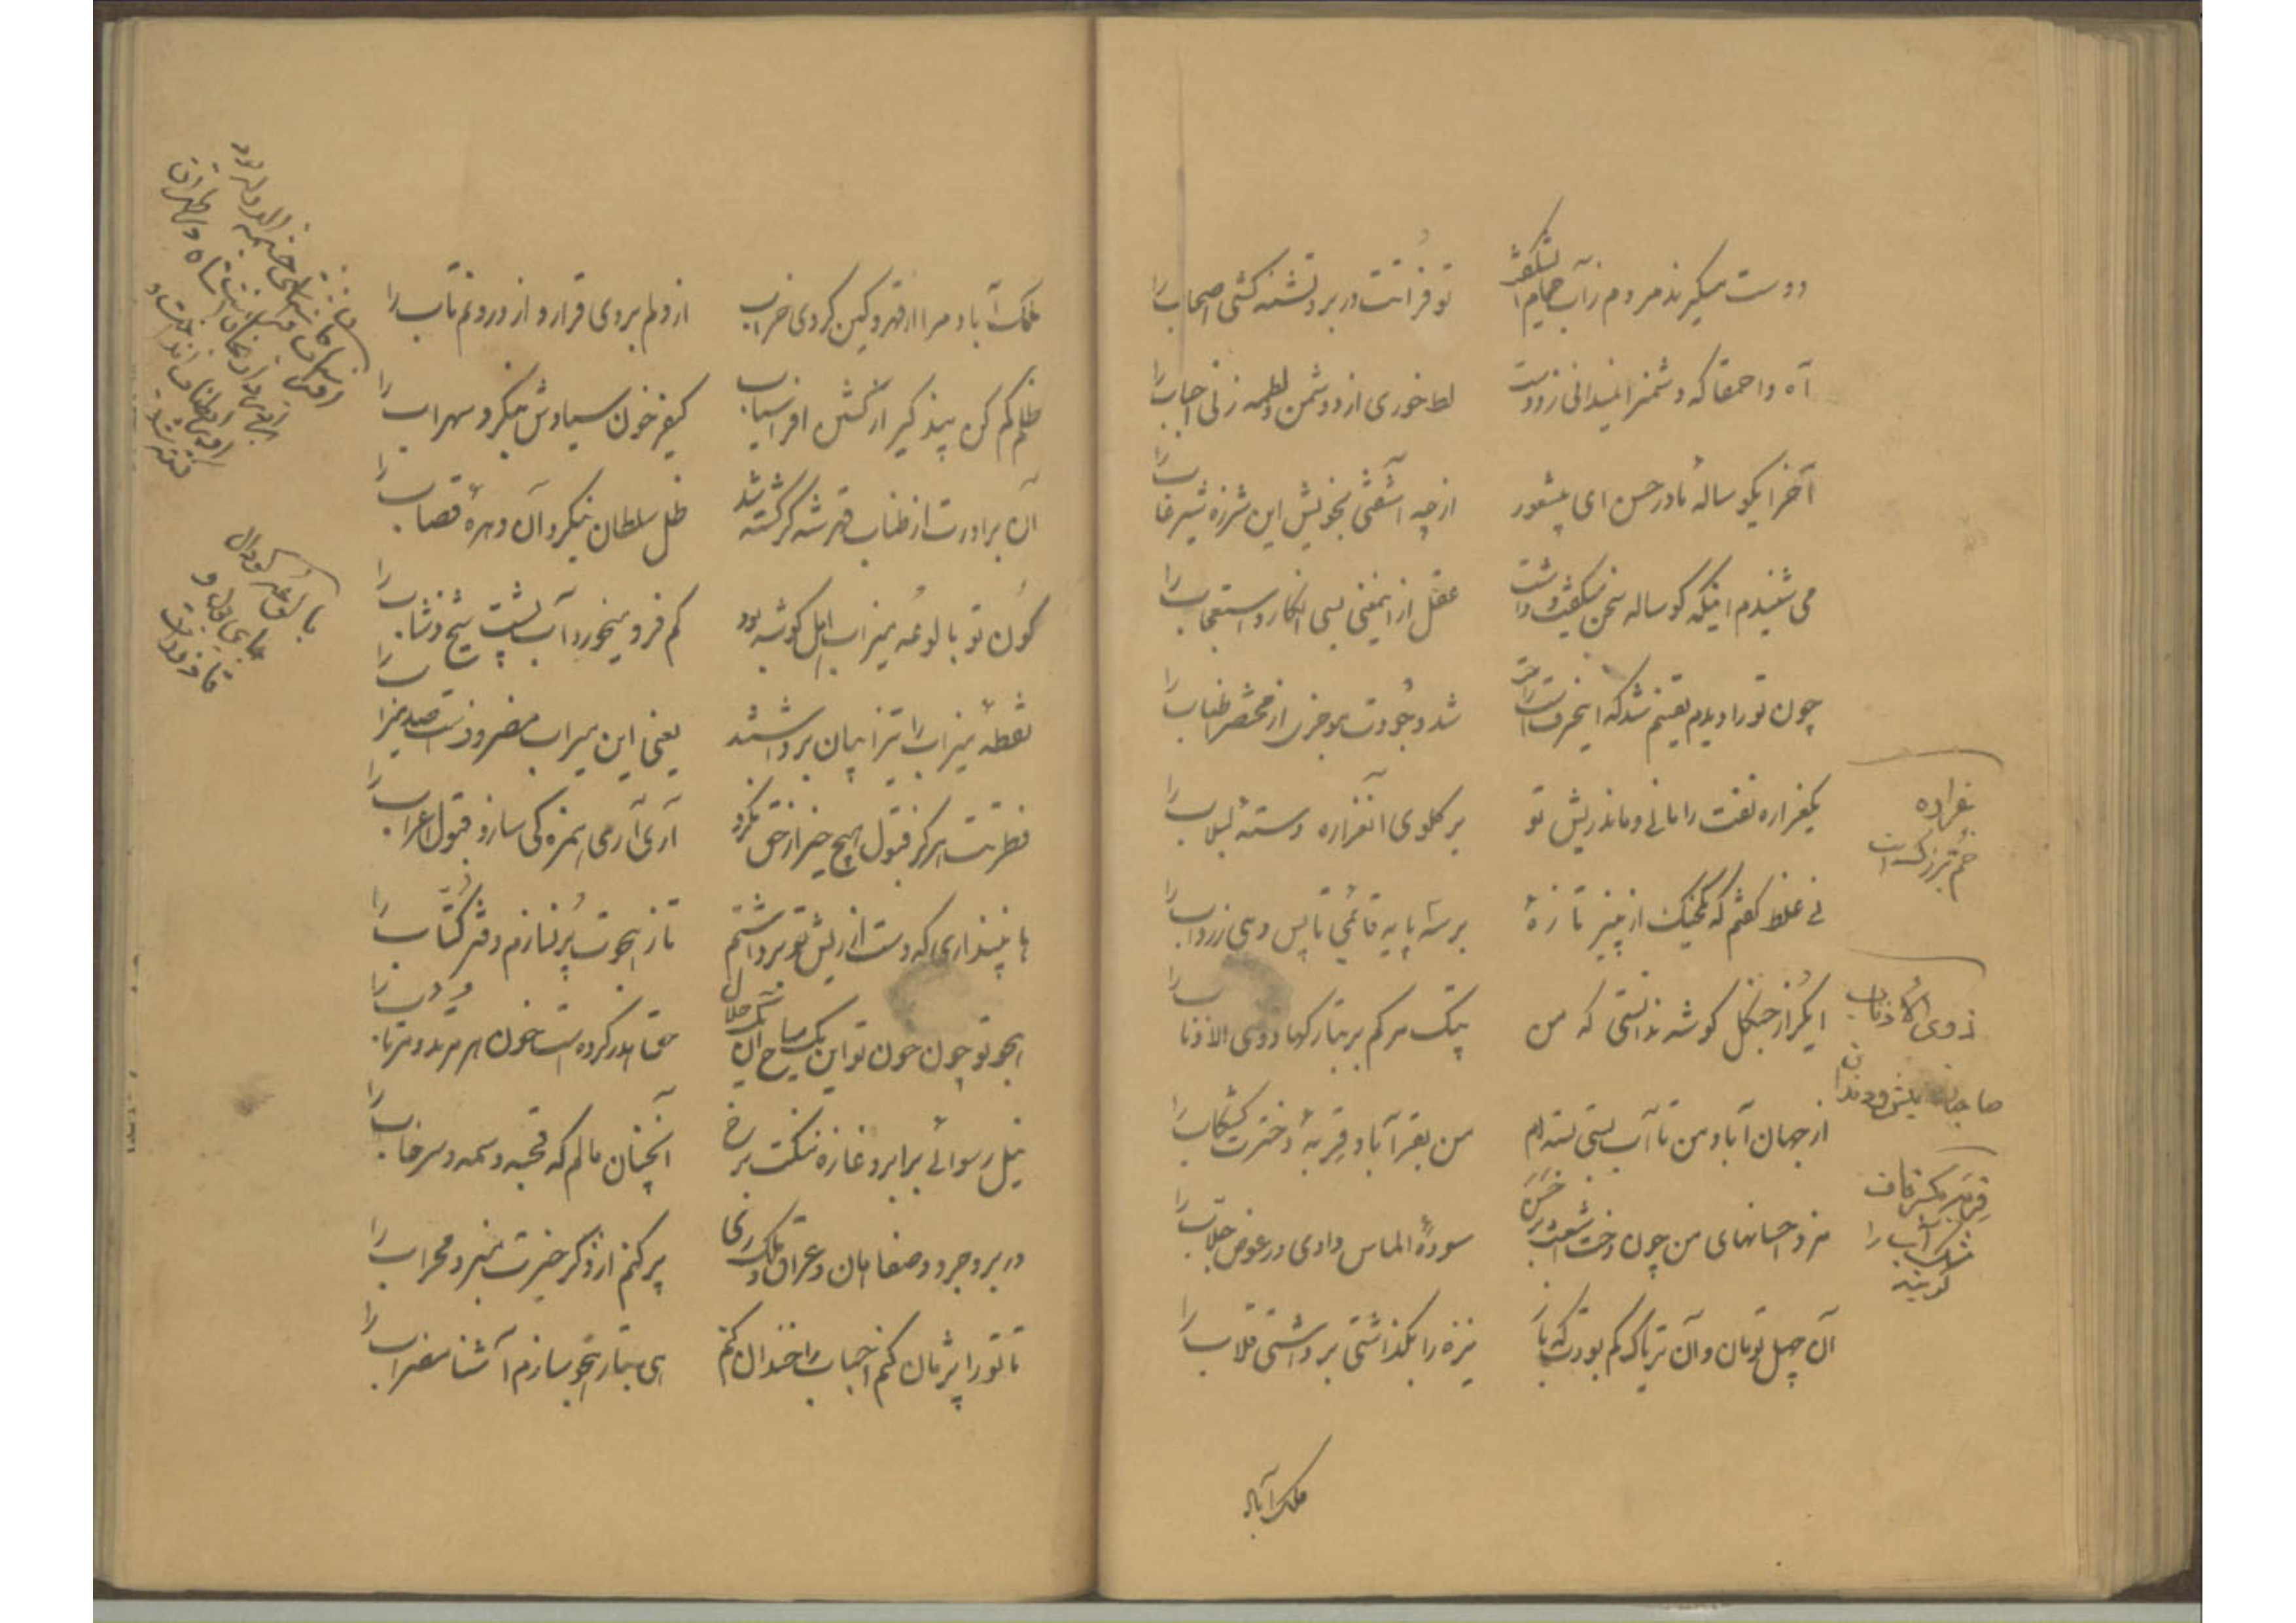 دوست میگیرند مردم ز آب حمام ای شگفت
تو فراتت در بر و تشنه کشی اصحاب را
آه واحمقا که دشمن را نمیدانی ز دوست
لط خوری از دشمن و لطمه زنی احباب را
آخر ایگوساله مادر حسن ای بیشعور
از چه آشفتی بخویش این شرزه شیر غاب را
می شنیدم اینکه گوساله سخن میگفت و داشت
عقل ازینمعنی بسی انکار و استعجاب را
چون تو را دیدم یقینم شد که اینحرفست راست
شد وجودت موجزی از مختصر اطناب را
یکغراره نفت را مانی و ماند ریش تو
بر گلوی آنغراره دسته لبلاب را
نی غلط گفتم که یکخیک از پنیر تازه
بر سه پایه قائمی تا پس دهی زرداب را
ایگراز جنگل گوشه ندانستی که من
پتک مرگم بر بتارکها ذوی الاذناب را
از جهان آباد من تا آب بستی بسته ام
من بقعر آباد قربه دخترت کشکاب را
مزد احسانهای من چون رخت شعت بر خسن
سوده الماس دادی در عوض جلاب را
آن چهل تومان و آن تریاک کم بودت که باز
نیزه را بگذاشتی برداشتی قلاب را
غراره
خم بزرگست
ذوی الاذناب
صاحبان ریش و دندان
قربه بکسر قاف
مشک آب را
گویند
ملک آباد
ملک آباد مرا از قهر و کین کردی خراب
از دلم بردی قرار و از درونم تاب را
ظلم کم کن پند گیر از کشتن افراسیاب
کیفر خون سیاوش بنگر و سهراب را
آن برادرت از طناب قهر شه گر کشته شد
ظل سلطان بنگر و آن دهره قصاب را
کون تو بالوعه میزاب اهل گوشه بود
کم فرو میخورد آب پشت شیخ و شاب را
نقطه میزاب را تیزابیان برداشتند
یعنی این میراب مضروفست صد میزاب را
فطرتت هرگز قبول هیچ چیز از حق نکرد
آری آری همزه کی سازد قبول اعراب را
ها نپنداری که دست از ریش تو برداشتم
تا ز هجوت پر نسازم دفتر کتاب را
هجو تو چون خون تو این یک مباح آن یک حلال
حق هدر کرده است خون هر مرتد و مرتاب را
نیل رسوائی بر ابرو غازه نکبت برخ
آنچنان مالم که قحبه وسمه و سرخاب را
در بروجرد و صفاهان و عراق و ملک ری
پر کنم از ذکر خیرت منبر و محراب را
تا تو را پژمان کنم احباب را خندان کنم
هی بتار هجو سازم آشنا مضراب را
بالوعه گودال
جای بول و
قاذورات